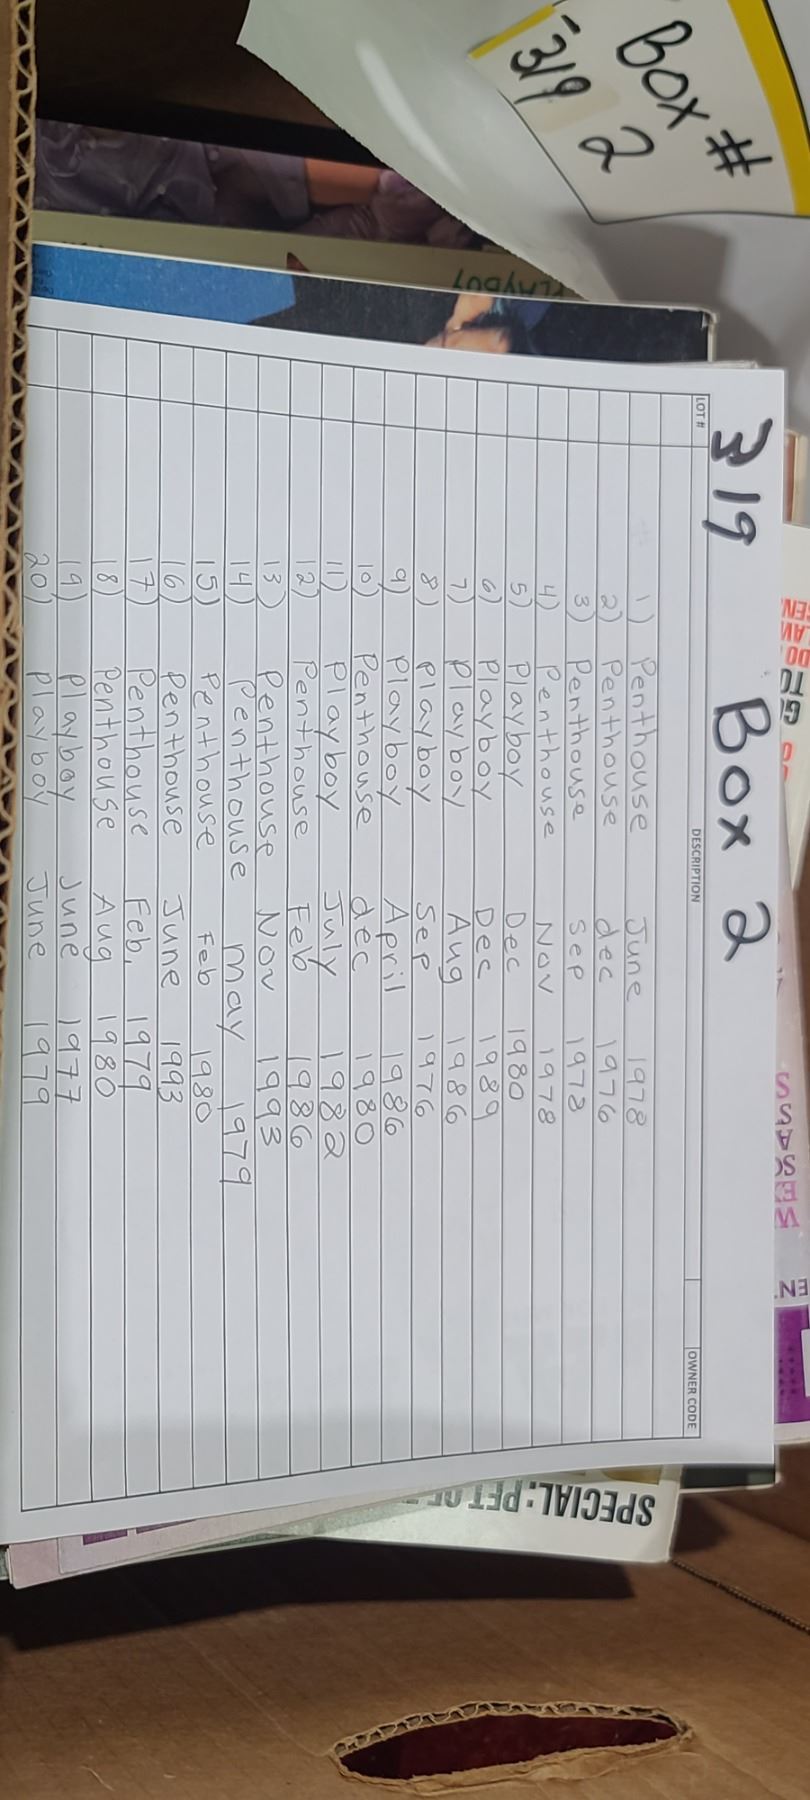 Box #
319 2
PLAYBOY
319 Box 2
LOT # DESCRIPTION OWNER CODE
1) Penthouse June 1978
2) Penthouse dec 1976
3) Penthouse Sep 1978
4) Penthouse Nov 1978
5) Playboy Dec 1980
6) Playboy Dec 1989
7) Playboy Aug 1986
8) Playboy Sep 1976
9) Playboy April 1986
10) Penthouse dec 1980
11) Playboy July 1982
12) Penthouse Feb 1986
13) Penthouse Nov 1993
14) Penthouse May 1979
15) Penthouse Feb 1980
16) Penthouse June 1993
17) Penthouse Feb, 1979
18) Penthouse Aug 1980
19) Playboy June 1977
20) Playboy June 1979
SPECIAL: PET OF